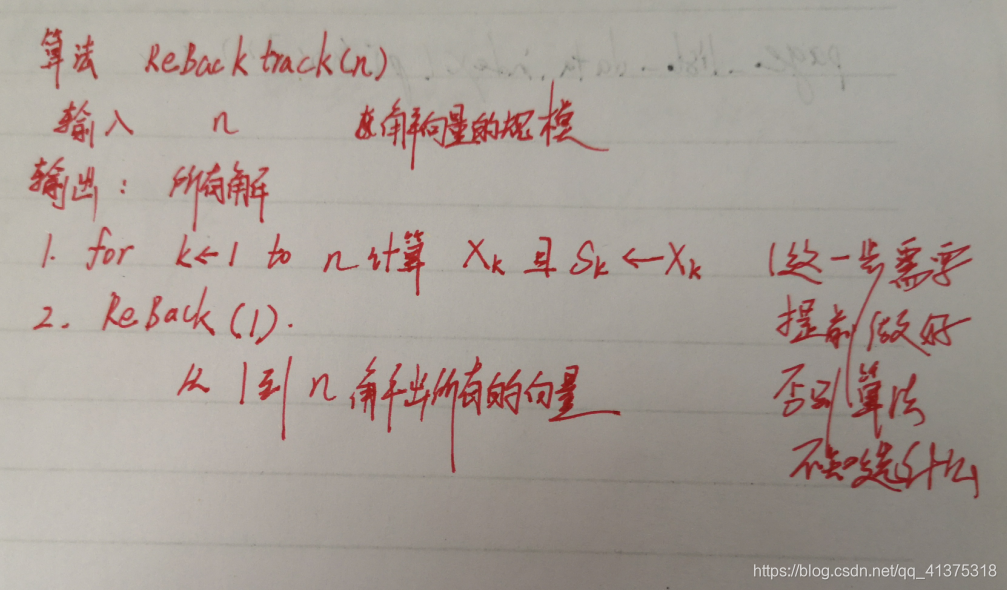 算法 ReBacktrack(n)
输入 n 解向量的规模
输出: 所有解
1. for k←1 to n 计算 Xk 且 Sk ← Xk (这一步需要
2. ReBack(1). 提前做好
从 1 到 n 解出所有的向量 否则算法
不知道是什么
https://blog.csdn.net/qq_41375318